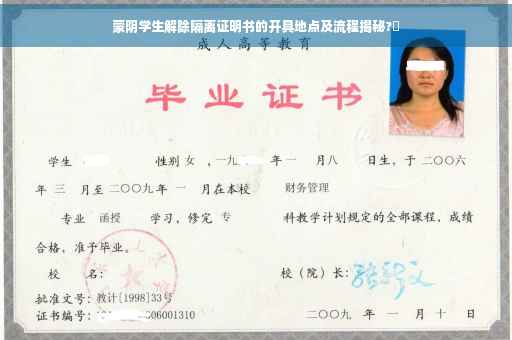 蒙阴学生解除隔离证明书的开具地点及流程揭秘?
成人高等教育
毕业证书
学生 性别 女 ,一九 年一 月八 日生,于二〇〇六
年 三 月至二〇〇九年 一 月在本校 财务管理
专业 函授 学习,修完 专 科教学计划规定的全部课程,成绩
合格,准予毕业。
校 名: 校(院)长:
批准文号:教计[1998]33号
证书编号: 06001310 二〇〇九 年 一 月 十 日